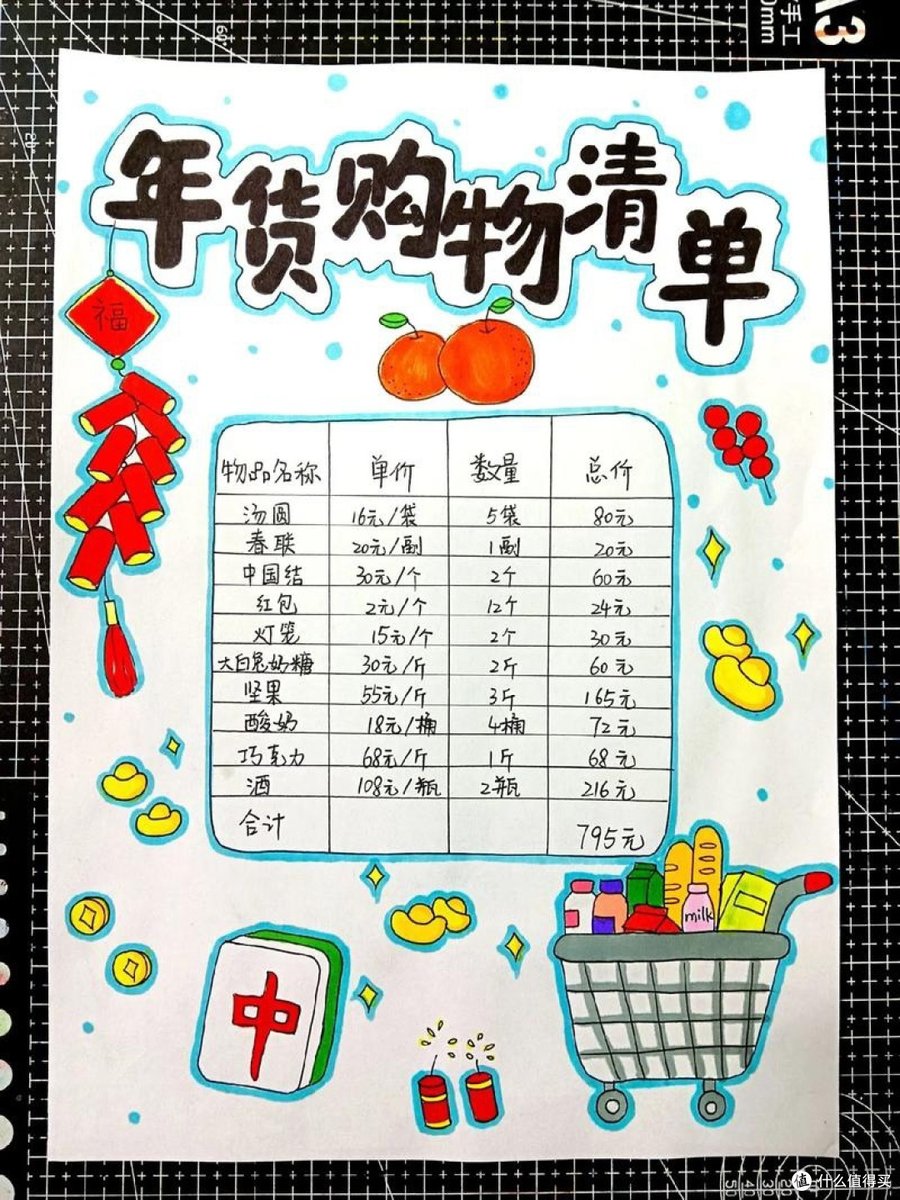 年货购物清单
福
物品名称 单价 数量 总价
汤圆 16元/袋 5袋 80元
春联 20元/副 1副 20元
中国结 30元/个 2个 60元
红包 2元/个 12个 24元
灯笼 15元/个 2个 30元
大白兔奶糖 30元/斤 2斤 60元
坚果 55元/斤 3斤 165元
酸奶 18元/桶 4桶 72元
巧克力 68元/斤 1斤 68元
酒 108元/瓶 2瓶 216元
合计 795元
milk
中
值 什么值得买